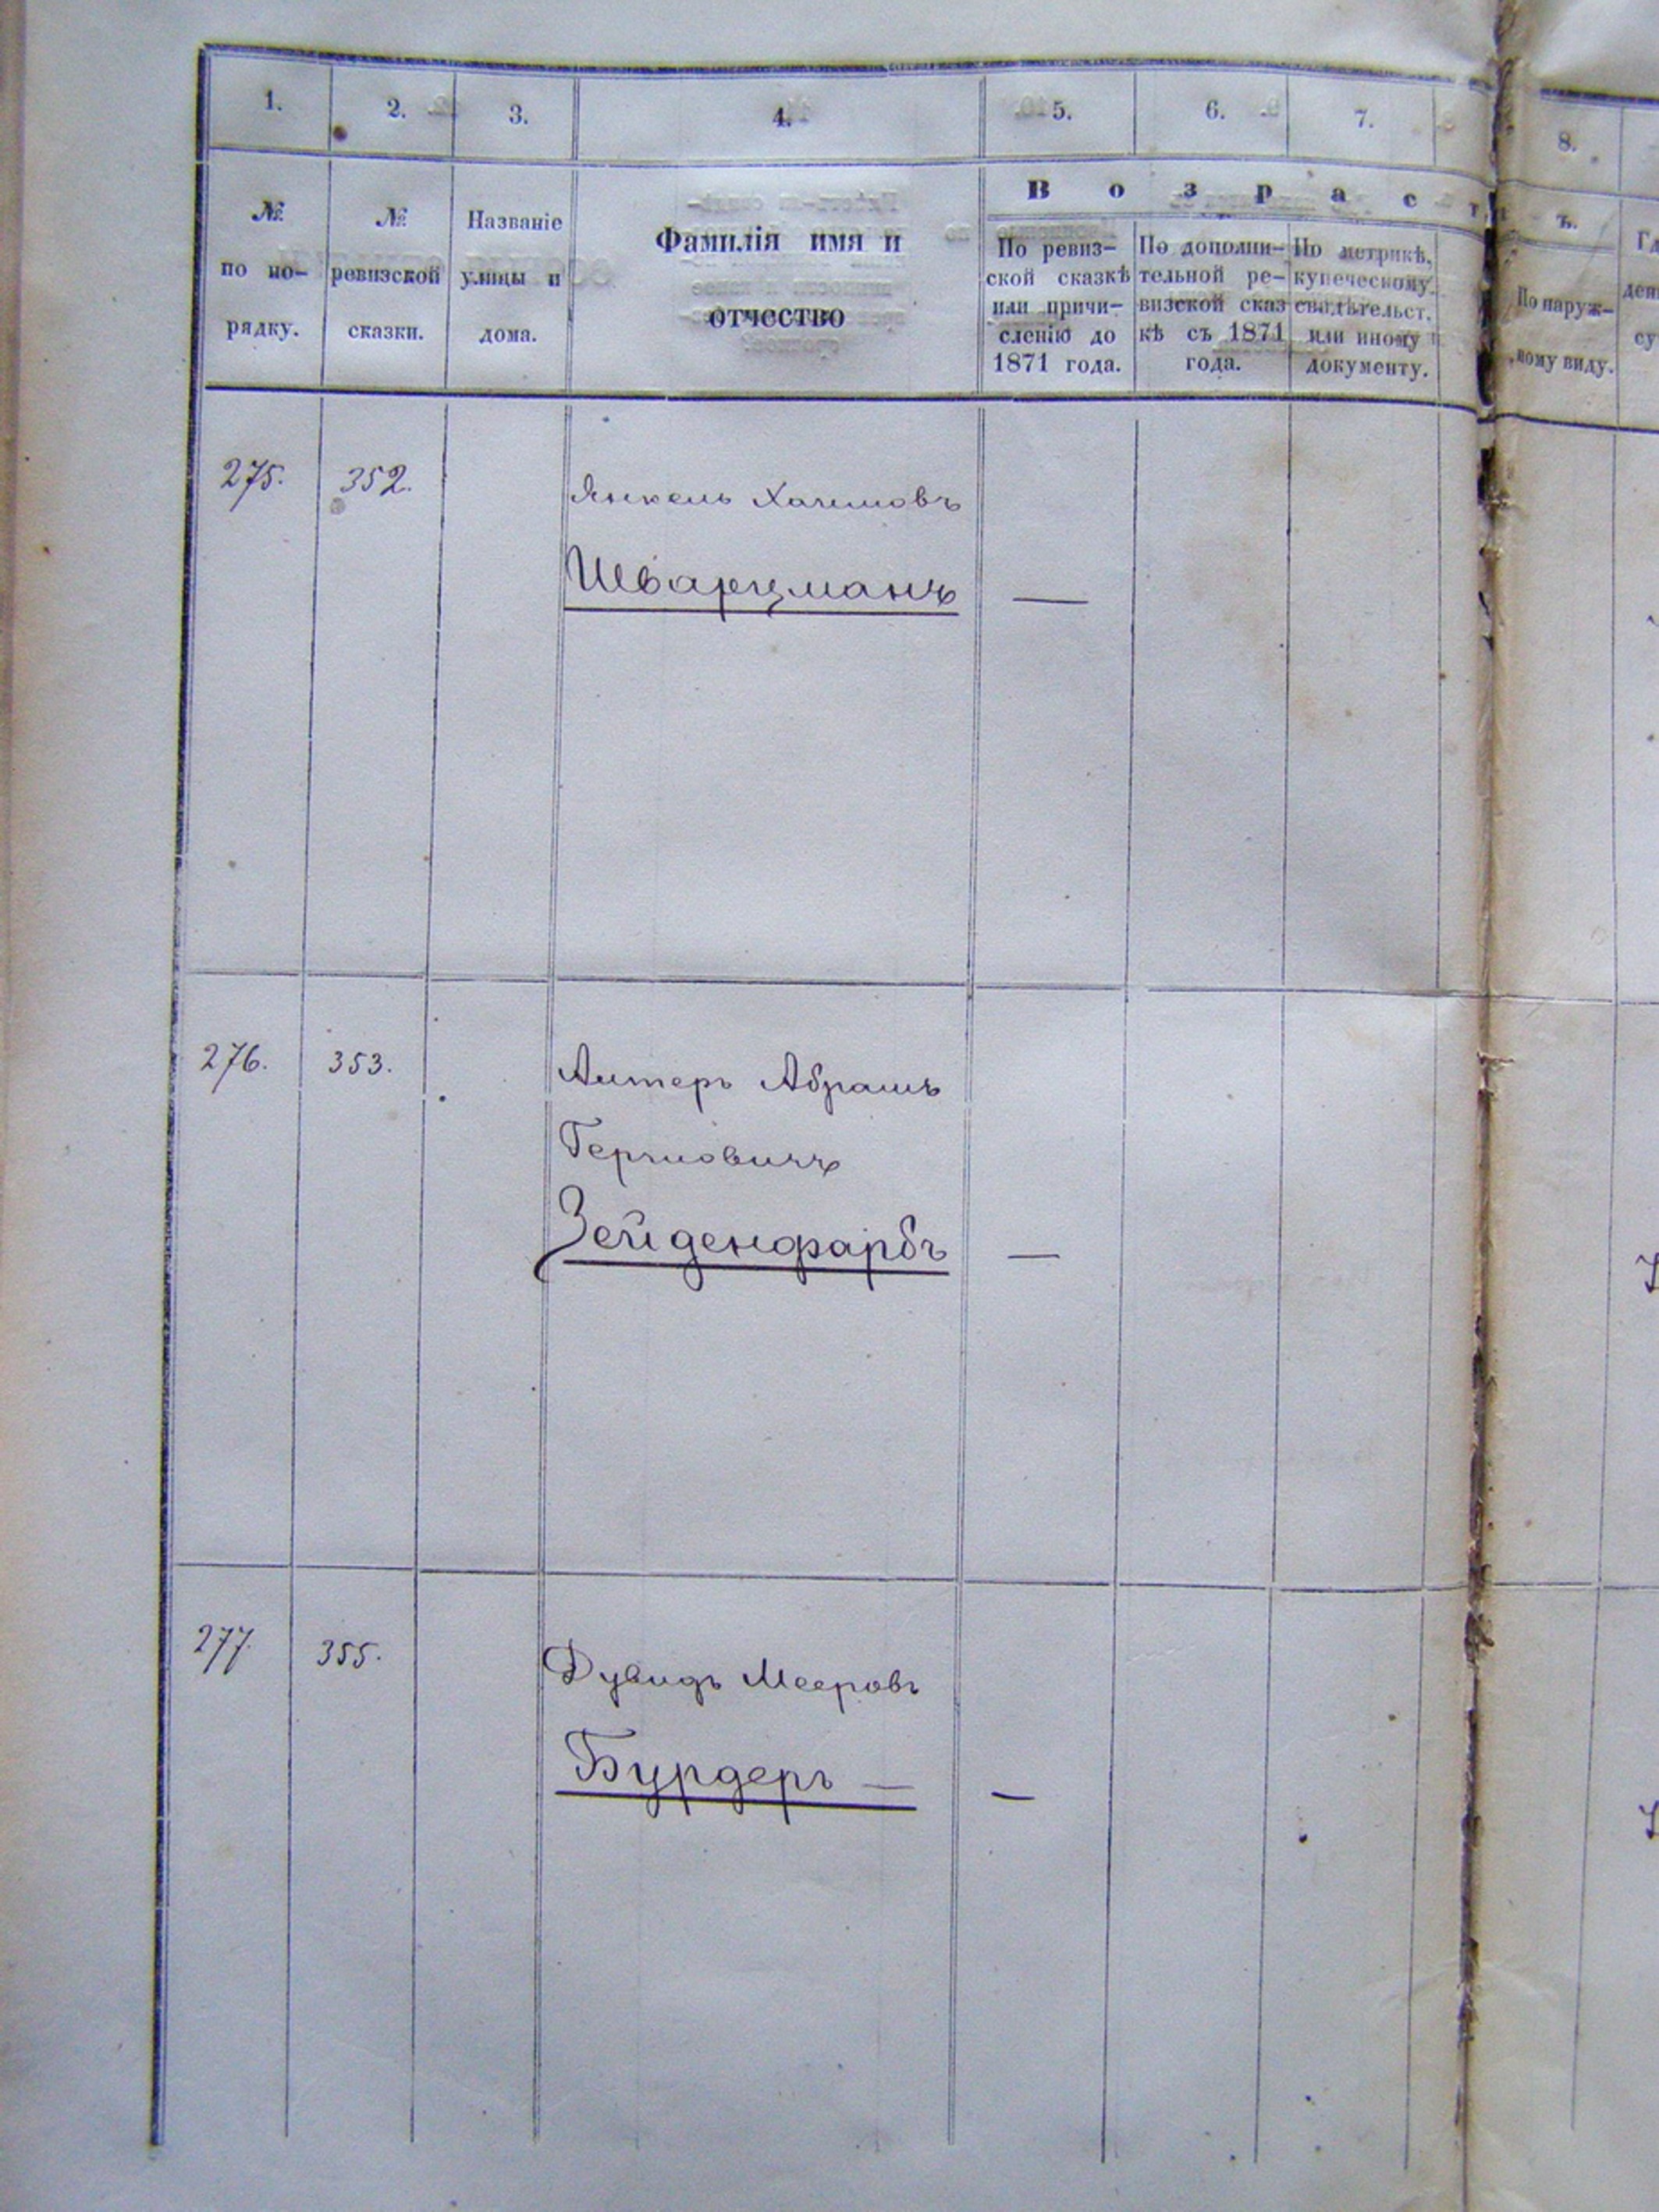 1. 2. 3. 4. 5. 6. 7. 8.
В о з р а с т ъ.
№ по по-рядку.
№ ревизской сказки.
Названіе улицы и дома.
Фамилія имя и
отчество
По ревиз-
ской сказкѣ
или причи-
сленію до
1871 года.
По дополни-
тельной ре-
визской сказ
кѣ съ 1871
года.
По метрикѣ,
купеческому
свидѣтельст.
или иному
документу.
По наруж-
ному виду.
275. 352. Янкель Хаимовъ
Шварцманъ —
276. 353. Алтеръ Абрамъ
Гершовичъ
Зейденфарбъ —
277. 355. Дувидъ Мееровъ
Бурдеръ — —